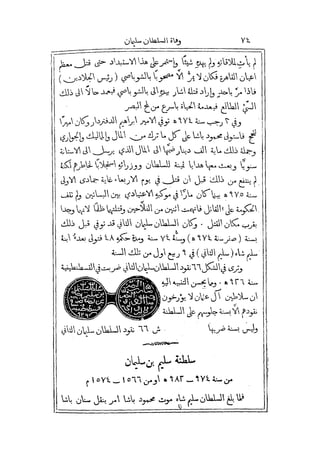 ٧٤ وفاة السلطان سليمان
لم يأتِ لملاقاته ولم يهدِهِ شيئًا واستمر على هذا الاستبداد حتى قتل معظم
اعيان القاهرة فكان لا يمرُّ الا مصحوبًا بالشوباصي (رئيس الجلادين)
فاذا مرَّ باحدٍ واراد قتله اشار بيدهِ الى الشوباصي فيعمد حالاً الى ذلك
السيّئ الطالع فيعدمهُ الحياة باسرع من لمح البصر
وفي ٢ رجب سنة ٩٧٤ توفي الامير ابراهيم الدفتردار وكان اميرًا
للحج فاستولى محمود باشا على كل ما ترك من المال والمماليك والجواري
وجملة ذلك ماية الف دينار ضمها الى المال الذي يرسل الى الاستانة
سنويًا وبعث معها هدايا ثمينة للسلطان ووزرائهِ استجلابًا لخاطرهم لكنه
لم ينتفع من ذلك قبل ان قتل في يوم الاربعاء غاية جمادى الاولى
سنة ٩٧٥ بينما كان مارًّا في موكبهِ الاعتيادي بين البساتين ولم تقف
الحكومة على القاتل فاتهمت اثنين من الفلاحين وقتلتهما ظلمًا لانهما وجدا
بقرب مكان القتل . وكان السلطان سليمان الثاني قد توفي قبل ذلك
بسنة (صفر سنة ٩٧٤) وسنُّهُ ٧٤ سنة ومدة حكمهِ ٤٨ فتولى بعدهُ ابنهُ
سليم شاه (سليم الثاني) في ٩ ربيع اول من تلك السنة
وترى في الشكل ٦٦ نقود السلطان سليمان الثاني ضربت في القسطنطينية
سنة ٩٢٦ . ومما يحسن التنبيه اليهِ
ان سلاطين آل عثمان لا يؤرخون
نقودهم الا بسنة جلوسهم على السلطنة
وليس بسنة ضربها
ش ٦٦ نقود السلطان سليمان الثاني
سلطنة سليم بن سليمان
من سنة ٩٧٤ – ٩٨٢ او من ١٥٦٦ – ١٥٧٤ م
فلما بلغ السلطان سليم شاه موت محمود باشا امر بنقل سنان باشا